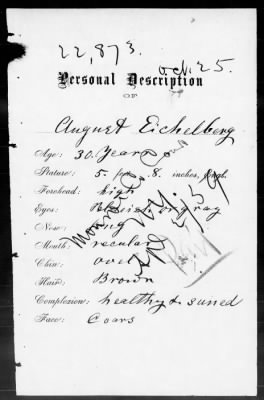 22,873.
Oct. 25.
Personal Description
OF
August Eichelberg
Age: 30. Years
Stature: 5. ft. 8. inches, Engl.
Forehead: high
Eyes: or gray
Nose:
Mouth: recular
Chin: ovel
Hair: Brown
Complexion: healthy & suned
Face: Coars
N.Y.